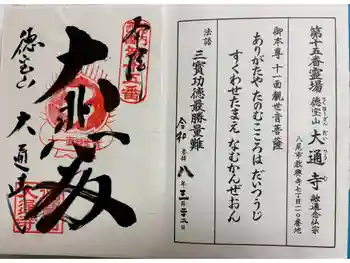 第十五番霊場
徳宝山 大通寺 融通念仏宗
八尾市教興寺七丁目一〇番地
御本尊 十一面観世音菩薩
ありがたや たのむこころは だいつうじ
すくわせたまえ なむかんぜおん
法語 三寳功徳最勝量難
令和 八年三月二二日
奉拝
大悲殿
徳宝山
大通寺